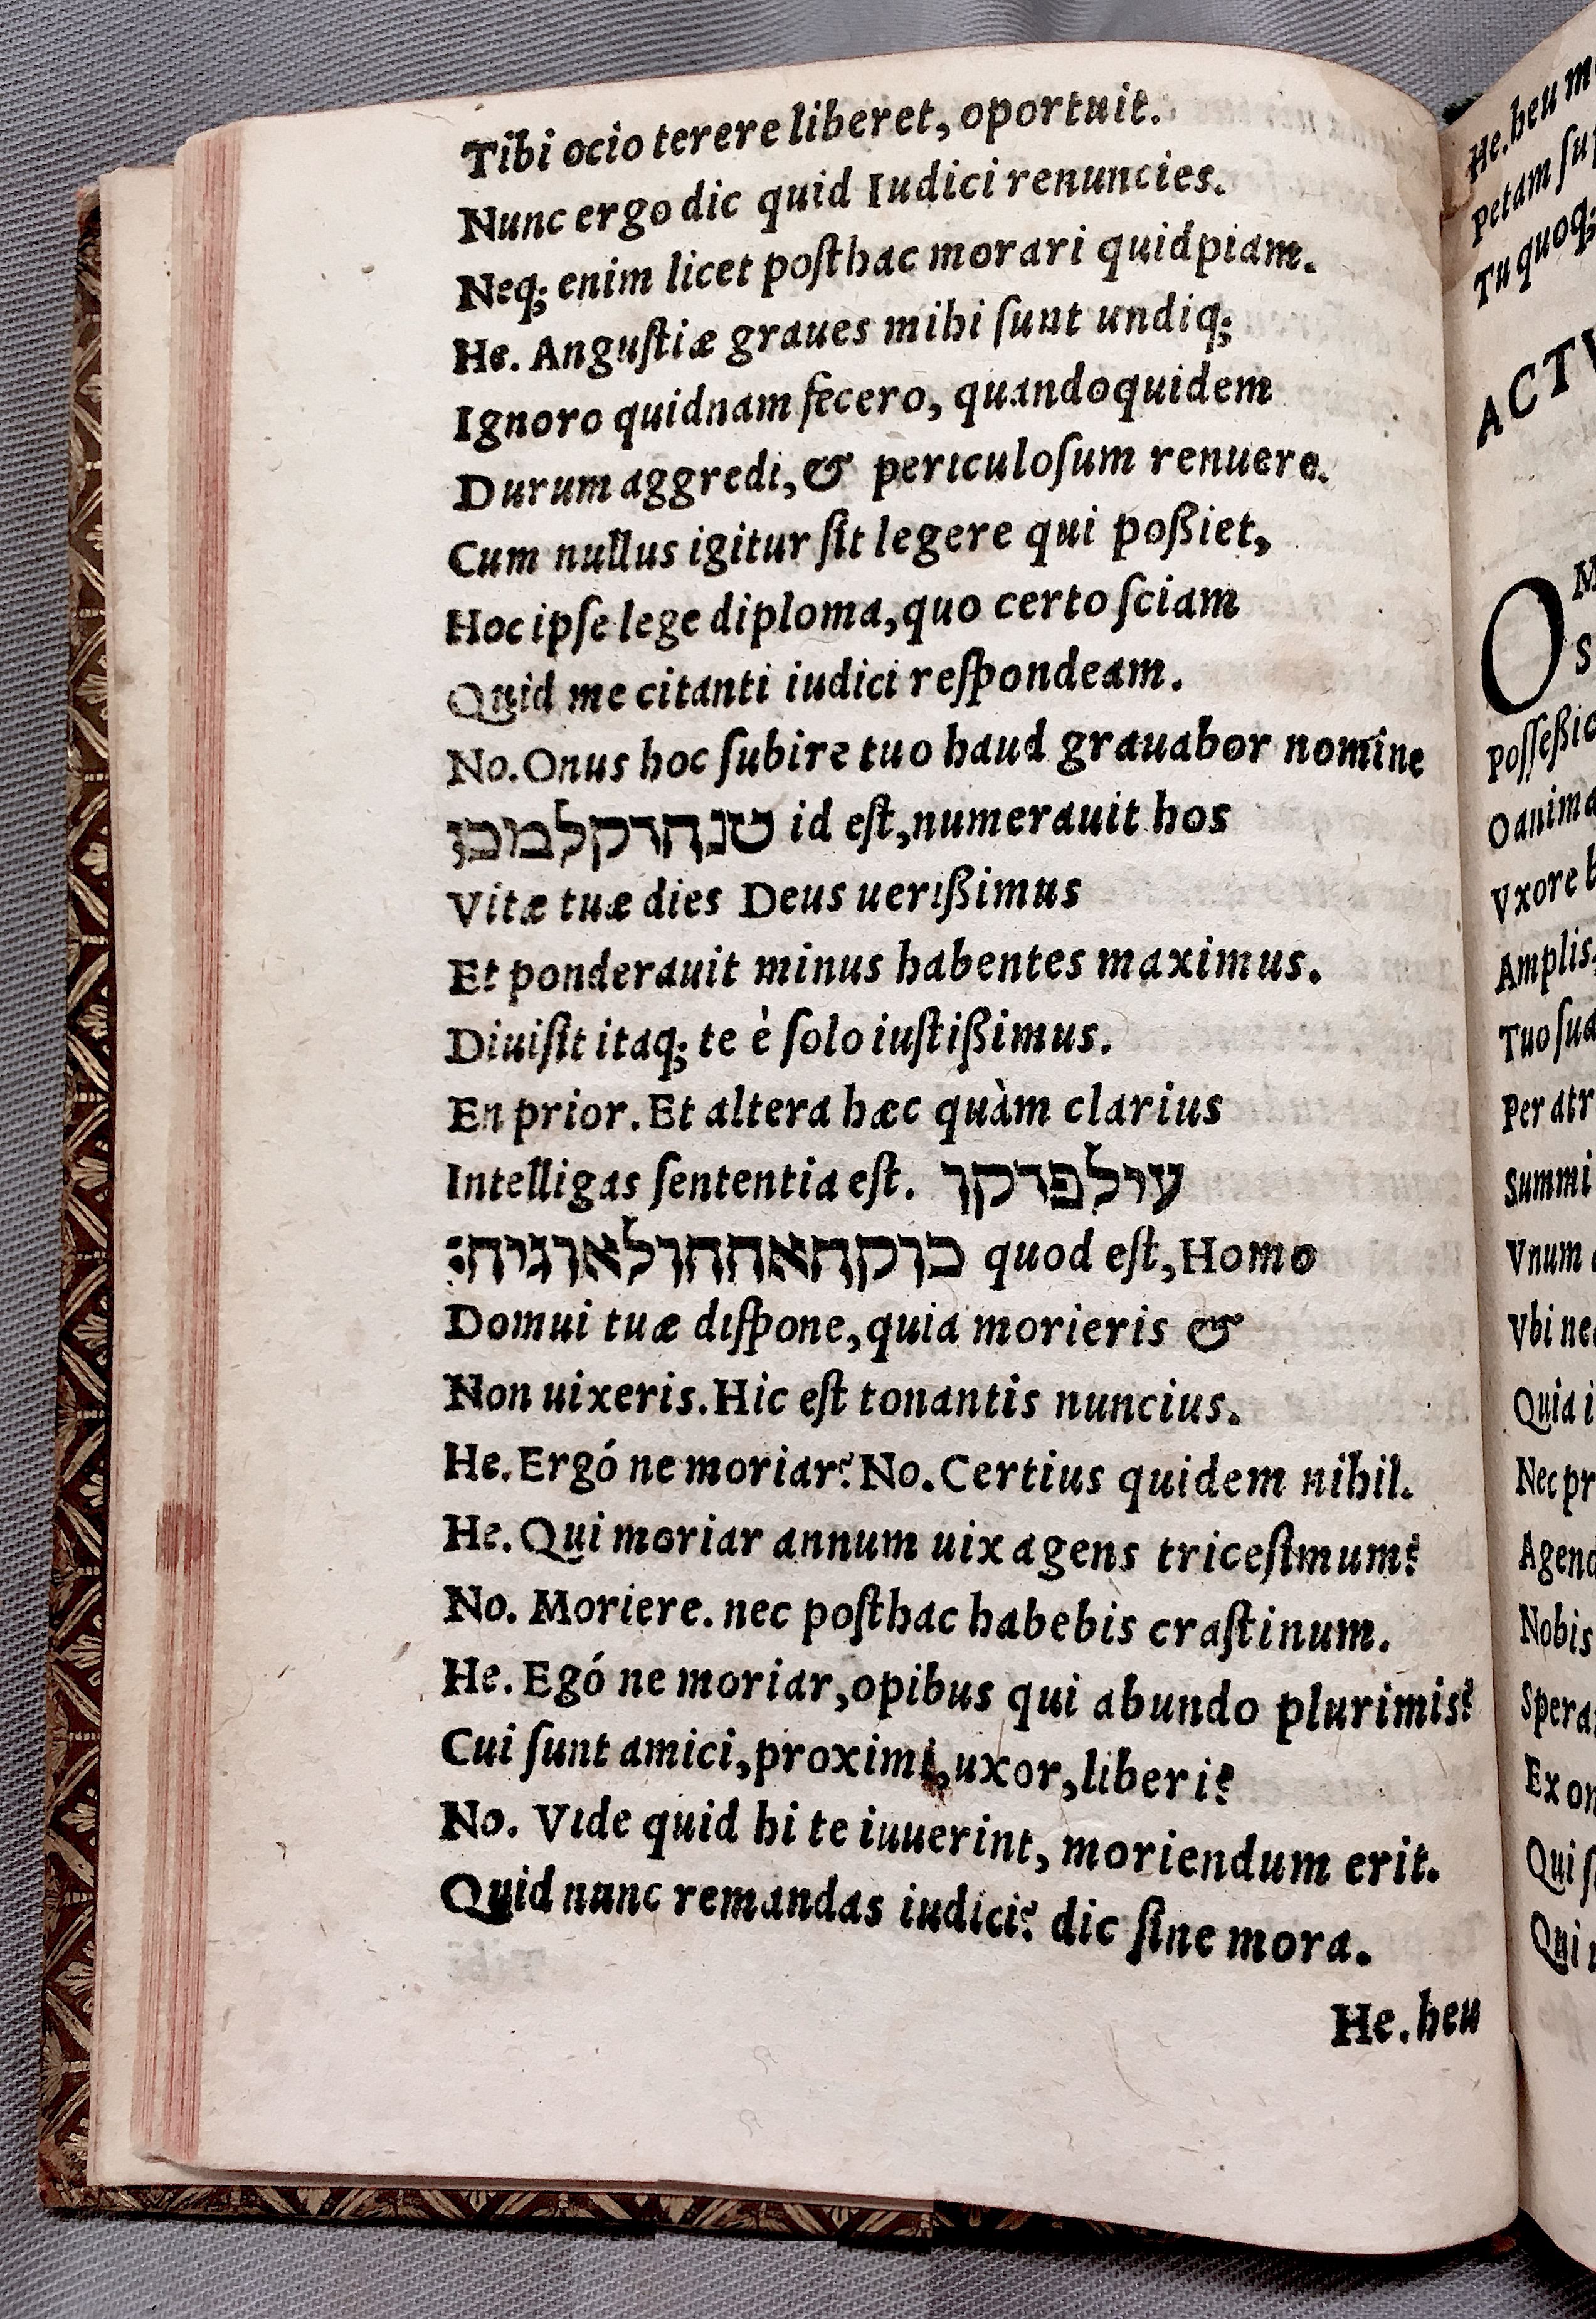 Tibi ocio terere liberet, oportuit.
Nunc ergo dic quid Iudici renuncies.
Neq; enim licet posthac morari quidpiam.
He. Angustiæ graues mihi sunt undiq;
Ignoro quidnam fecero, quandoquidem
Durum aggredi, & periculosum renuere.
Cum nullus igitur sit legere qui poßiet,
Hoc ipse lege diploma, quo certo sciam
Quid me citanti iudici respondeam.
No. Onus hoc subire tuo haud grauabor nomine
טנחדקלמכן id est, numerauit hos
Vitæ tuæ dies Deus uerißimus
Et ponderauit minus habentes maximus.
Diuisit itaq; te è solo iustißimus.
En prior. Et altera hæc quàm clarius
Intelligas sententia est. עילפדקך
quod est, Homo
Domui tuæ dispone, quia morieris &
Non uixeris. Hic est tonantis nuncius.
He. Ergó ne moriar? No. Certius quidem nihil.
He. Qui moriar annum uix agens tricesimum?
No. Moriere. nec posthac habebis crastinum.
He. Egó ne moriar, opibus qui abundo plurimis?
Cui sunt amici, proximi, uxor, liberi?
No. Vide quid hi te iuuerint, moriendum erit.
Quid nunc remandas iudici? dic sine mora.
He. heu
He. heu
Petam
Tu quoq;
O
O anima
Vxore
Amplis
Tuo
Per
Summi
Vnum
Vbi
Quia
Nec
Nobis
Ex
Qui
Qui